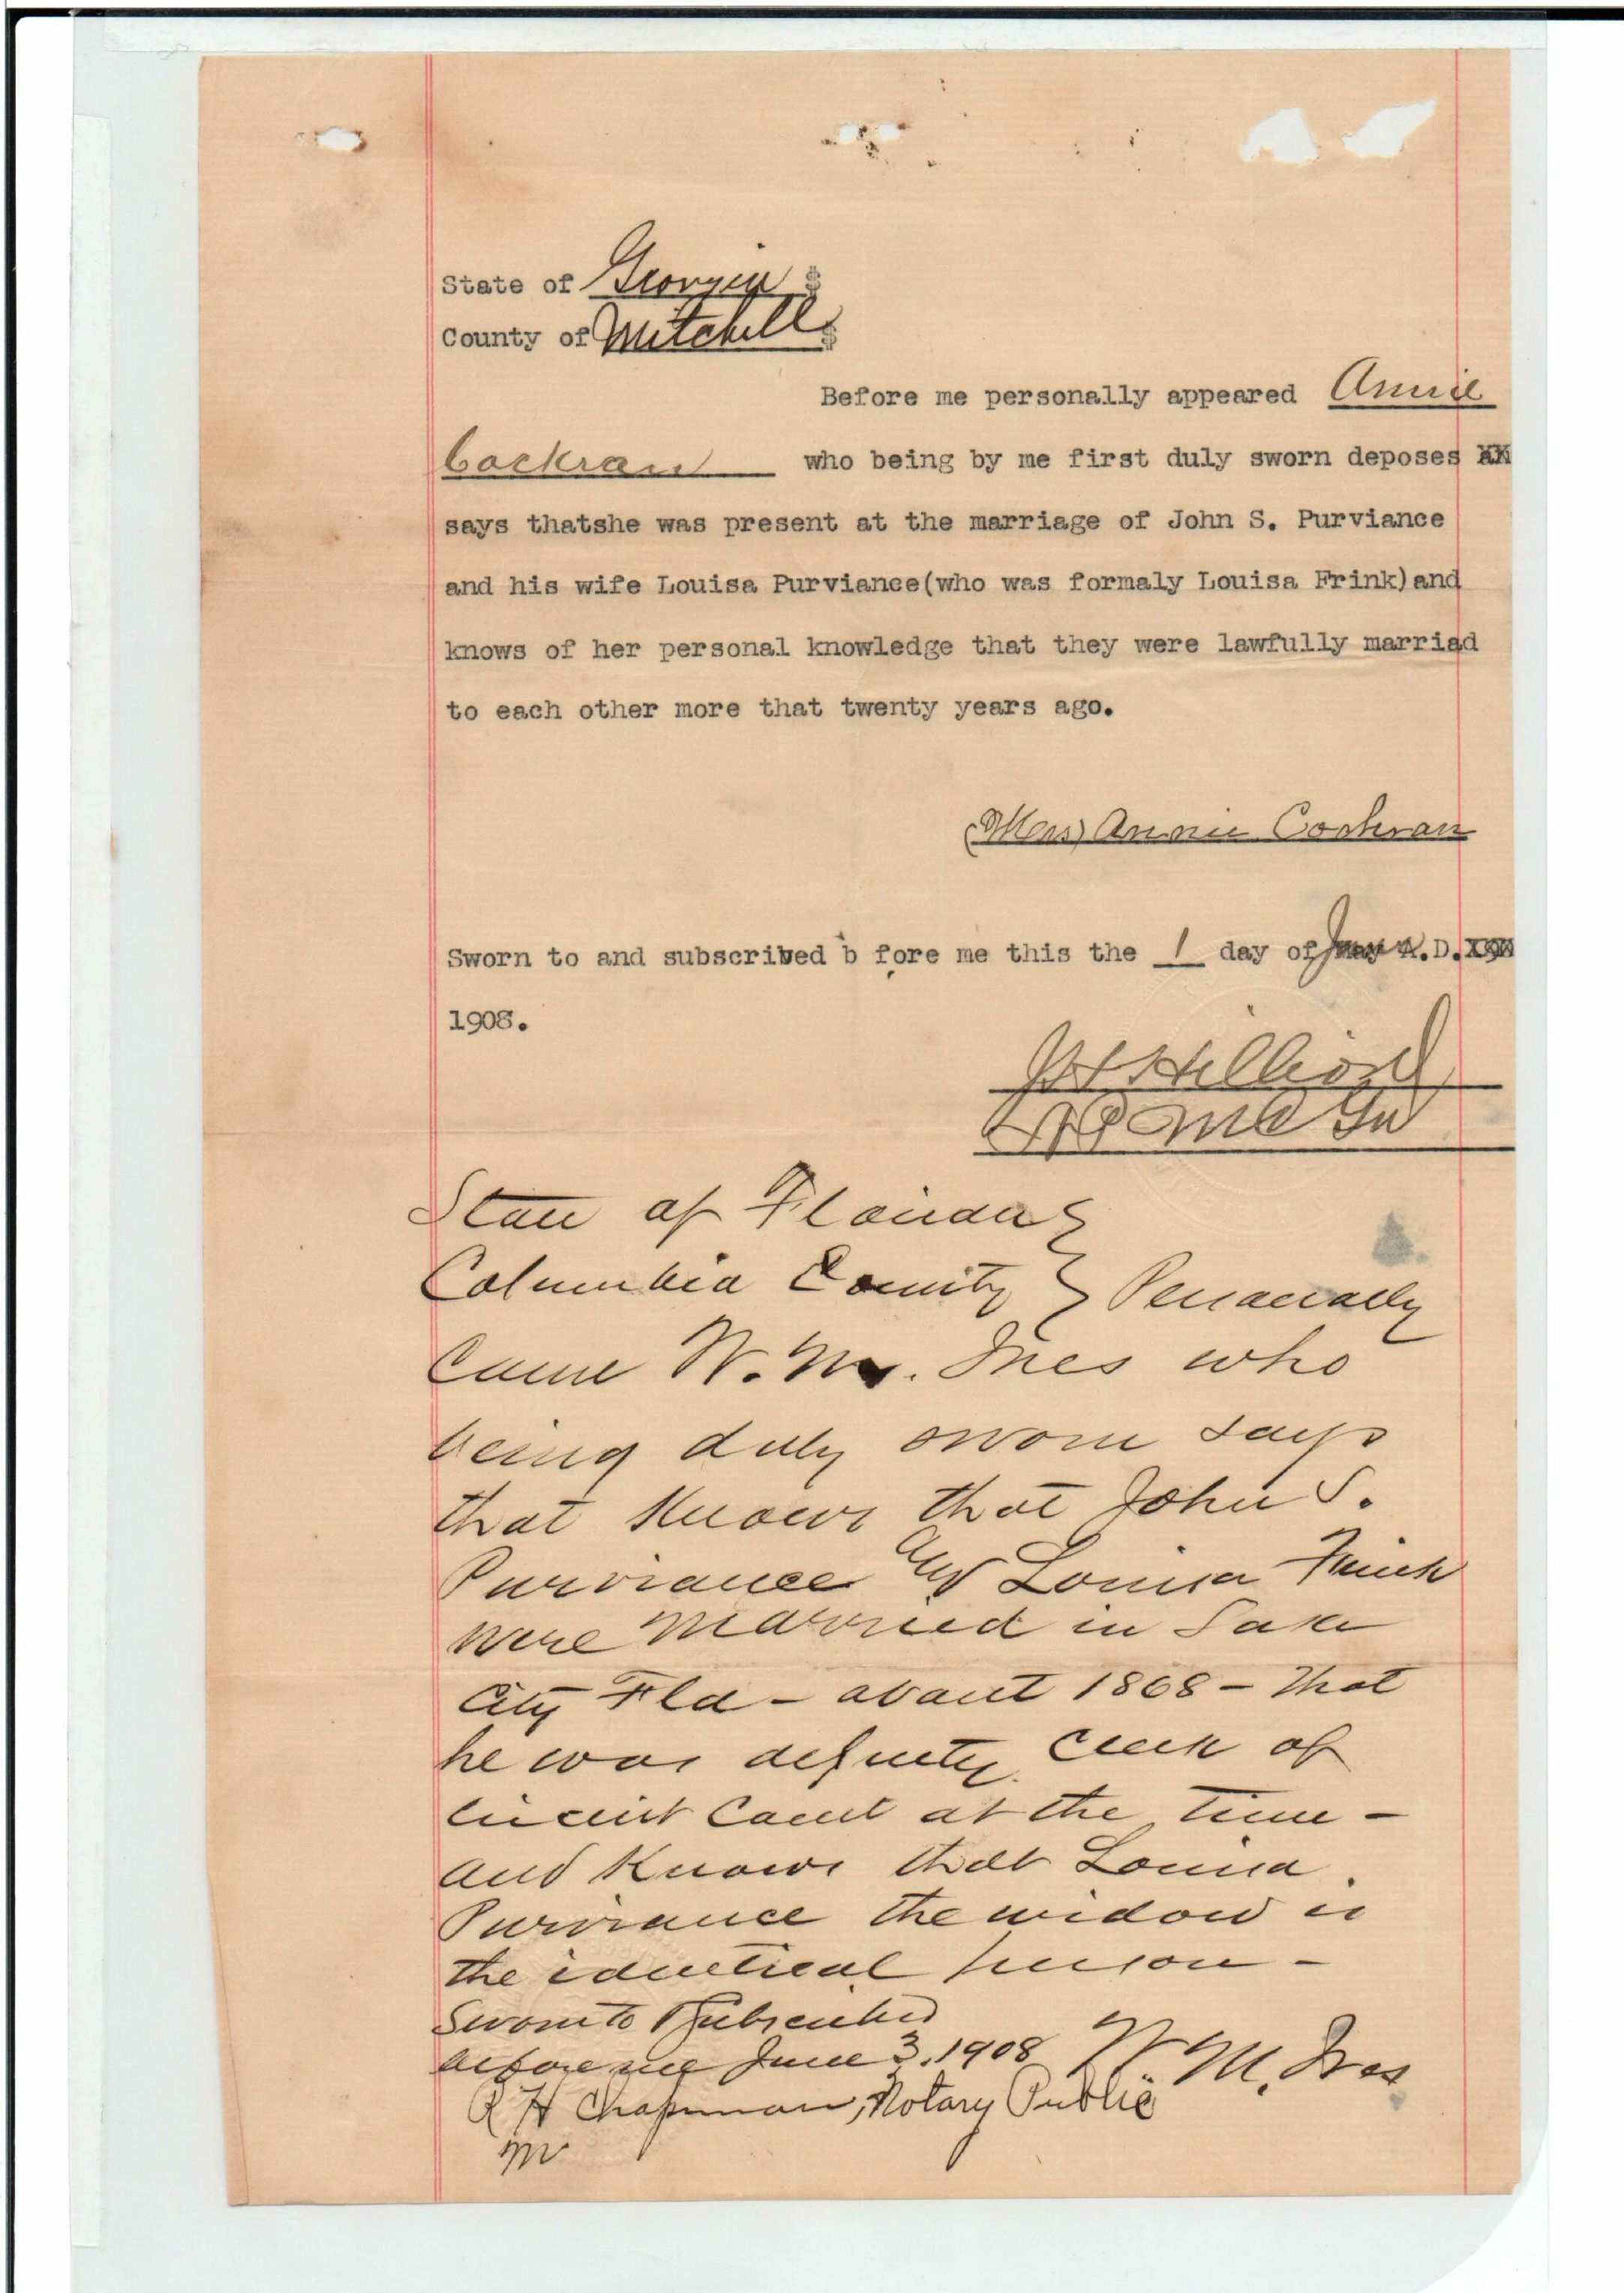 State of Georgia
County of Mitchell
Before me personally appeared Annie
Cockran who being by me first duly sworn deposes
says thatshe was present at the marriage of John S. Purviance
and his wife Louisa Purviance(who was formaly Louisa Frink)and
knows of her personal knowledge that they were lawfully marriad
to each other more that twenty years ago.
(Mrs) Annie Cochran
Sworn to and subscribed b fore me this the 1 day of June A.D.
1908.
State of Florida
Columbia County } Personally
Came W. M. Ives who
being duly sworn says
that Knows that John S.
Purviance and Louisa Frink
were married in Lake
City Fla - about 1868 - That
he was deputy Clerk of
Circuit Court at the time -
and Knows that Louisa
Purviance the widow is
the identical person -
Sworn to & Subscribed
before me June 3. 1908 W M. Ives
R H Chapman, Notary Public